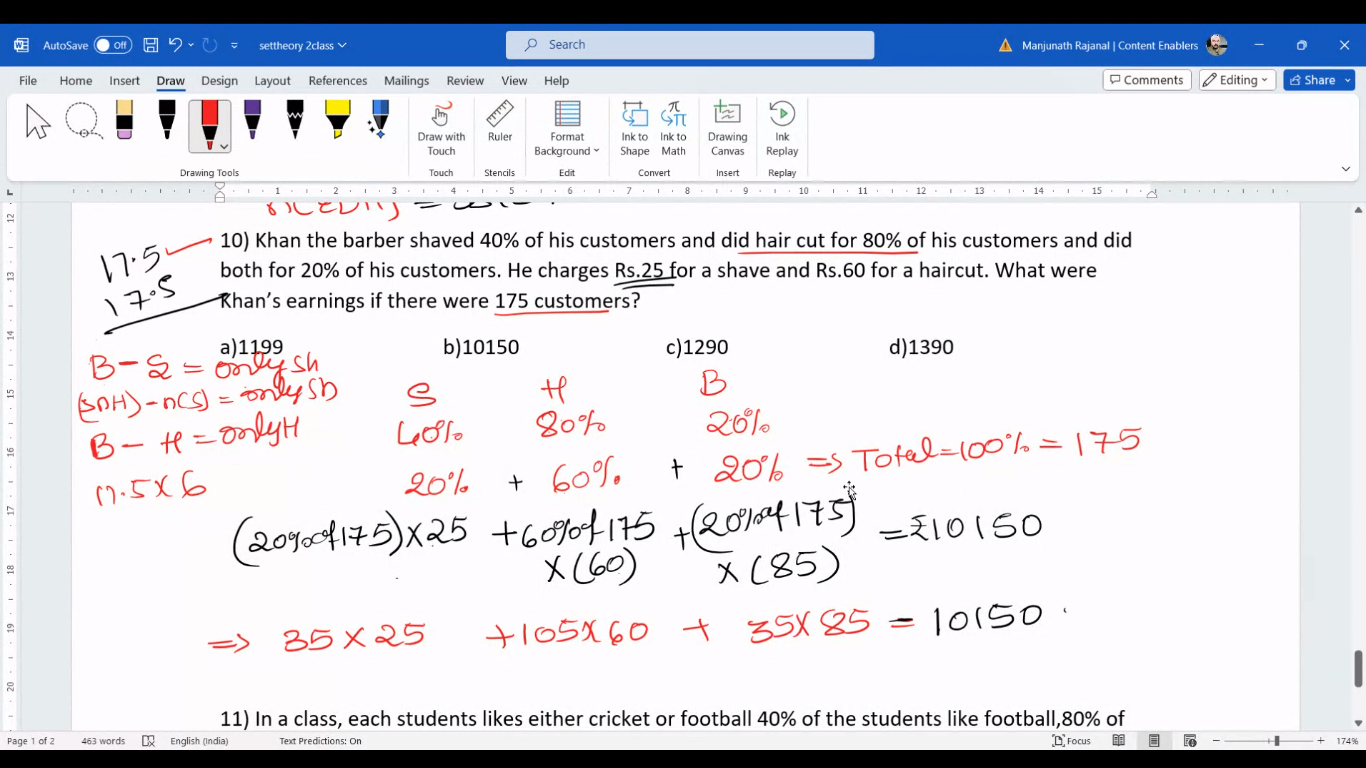 AutoSave Off settheory 2class Search Manjunath Rajanal | Content Enablers
File Home Insert Draw Design Layout References Mailings Review View Help Comments Editing Share
Draw with Touch Ruler Format Background Ink to Shape Ink to Math Drawing Canvas Ink Replay
Drawing Tools Touch Stencils Edit Convert Insert Replay
1 2 3 4 5 6 7 8 9 10 11 12 13 14 15
17.5
17.5
10) Khan the barber shaved 40% of his customers and did hair cut for 80% of his customers and did
both for 20% of his customers. He charges Rs.25 for a shave and Rs.60 for a haircut. What were
Khan's earnings if there were 175 customers?
a)1199 b)10150 c)1290 d)1390
B - S = only Sh
(S∩H) - n(S) = only Sb
B - H = only H
17.5 x 6
S H B
40% 80% 20%
20% + 60% + 20% => Total = 100% = 175
(20% of 175) x 25 + 60% of 175 + (20% of 175) = ₹10150
x (60) x (85)
=> 35 x 25 + 105 x 60 + 35 x 85 = 10150
11) In a class, each students likes either cricket or football 40% of the students like football,80% of
Page 1 of 2 463 words English (India) Text Predictions: On Focus 174%